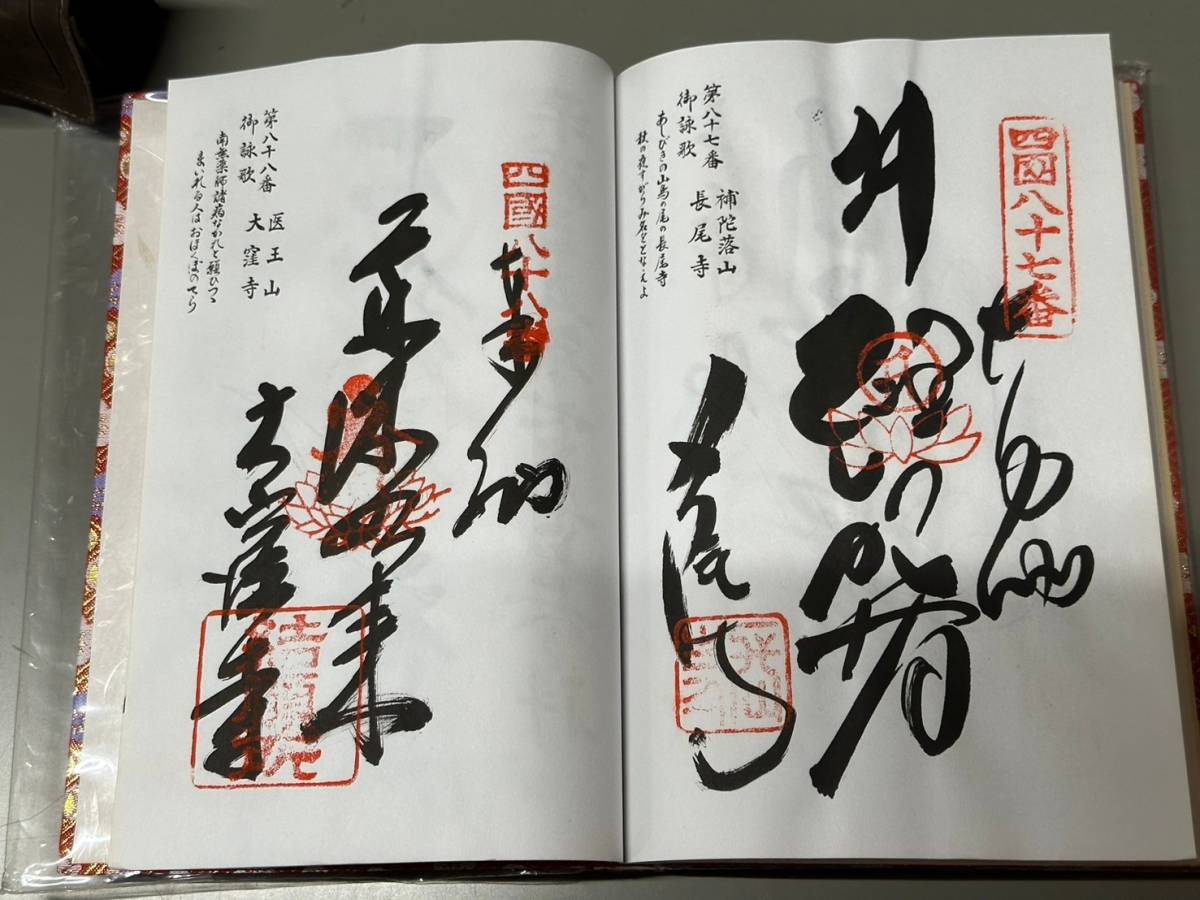 四国八十七番
奉納
第八十七番 補陀落山
御詠歌 長尾寺
あしびきの山鳥の尾の長尾寺
秋の夜すがらみ名をとなえよ
四國八十八番
奉納
薬師如来
大窪寺
結願所
第八十八番 医王山
御詠歌 大窪寺
南無薬師諸病なかれと願ひつゝ
まいれる人はおほくぼのてら